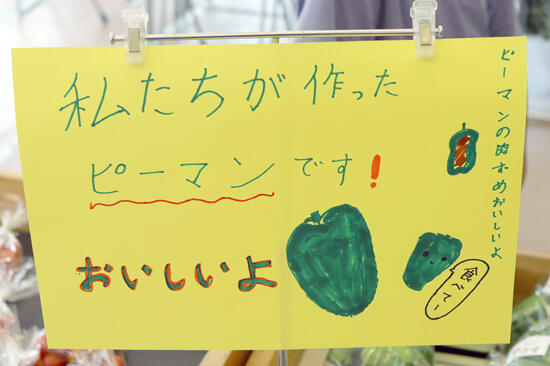 私たちが作った
ピーマンです!
おいしいよ
ピーマンの肉ホめおいしいよ
食べてー